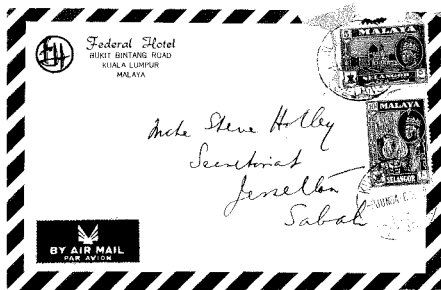 FH
Federal Hotel
BUKIT BINTANG ROAD
KUALA LUMPUR
MALAYA
MALAYA
SELANGOR
MALAYA
SELANGOR
Steve Holley
Secretariat
Jesselton
Sabah
BY AIR MAIL
PAR AVION